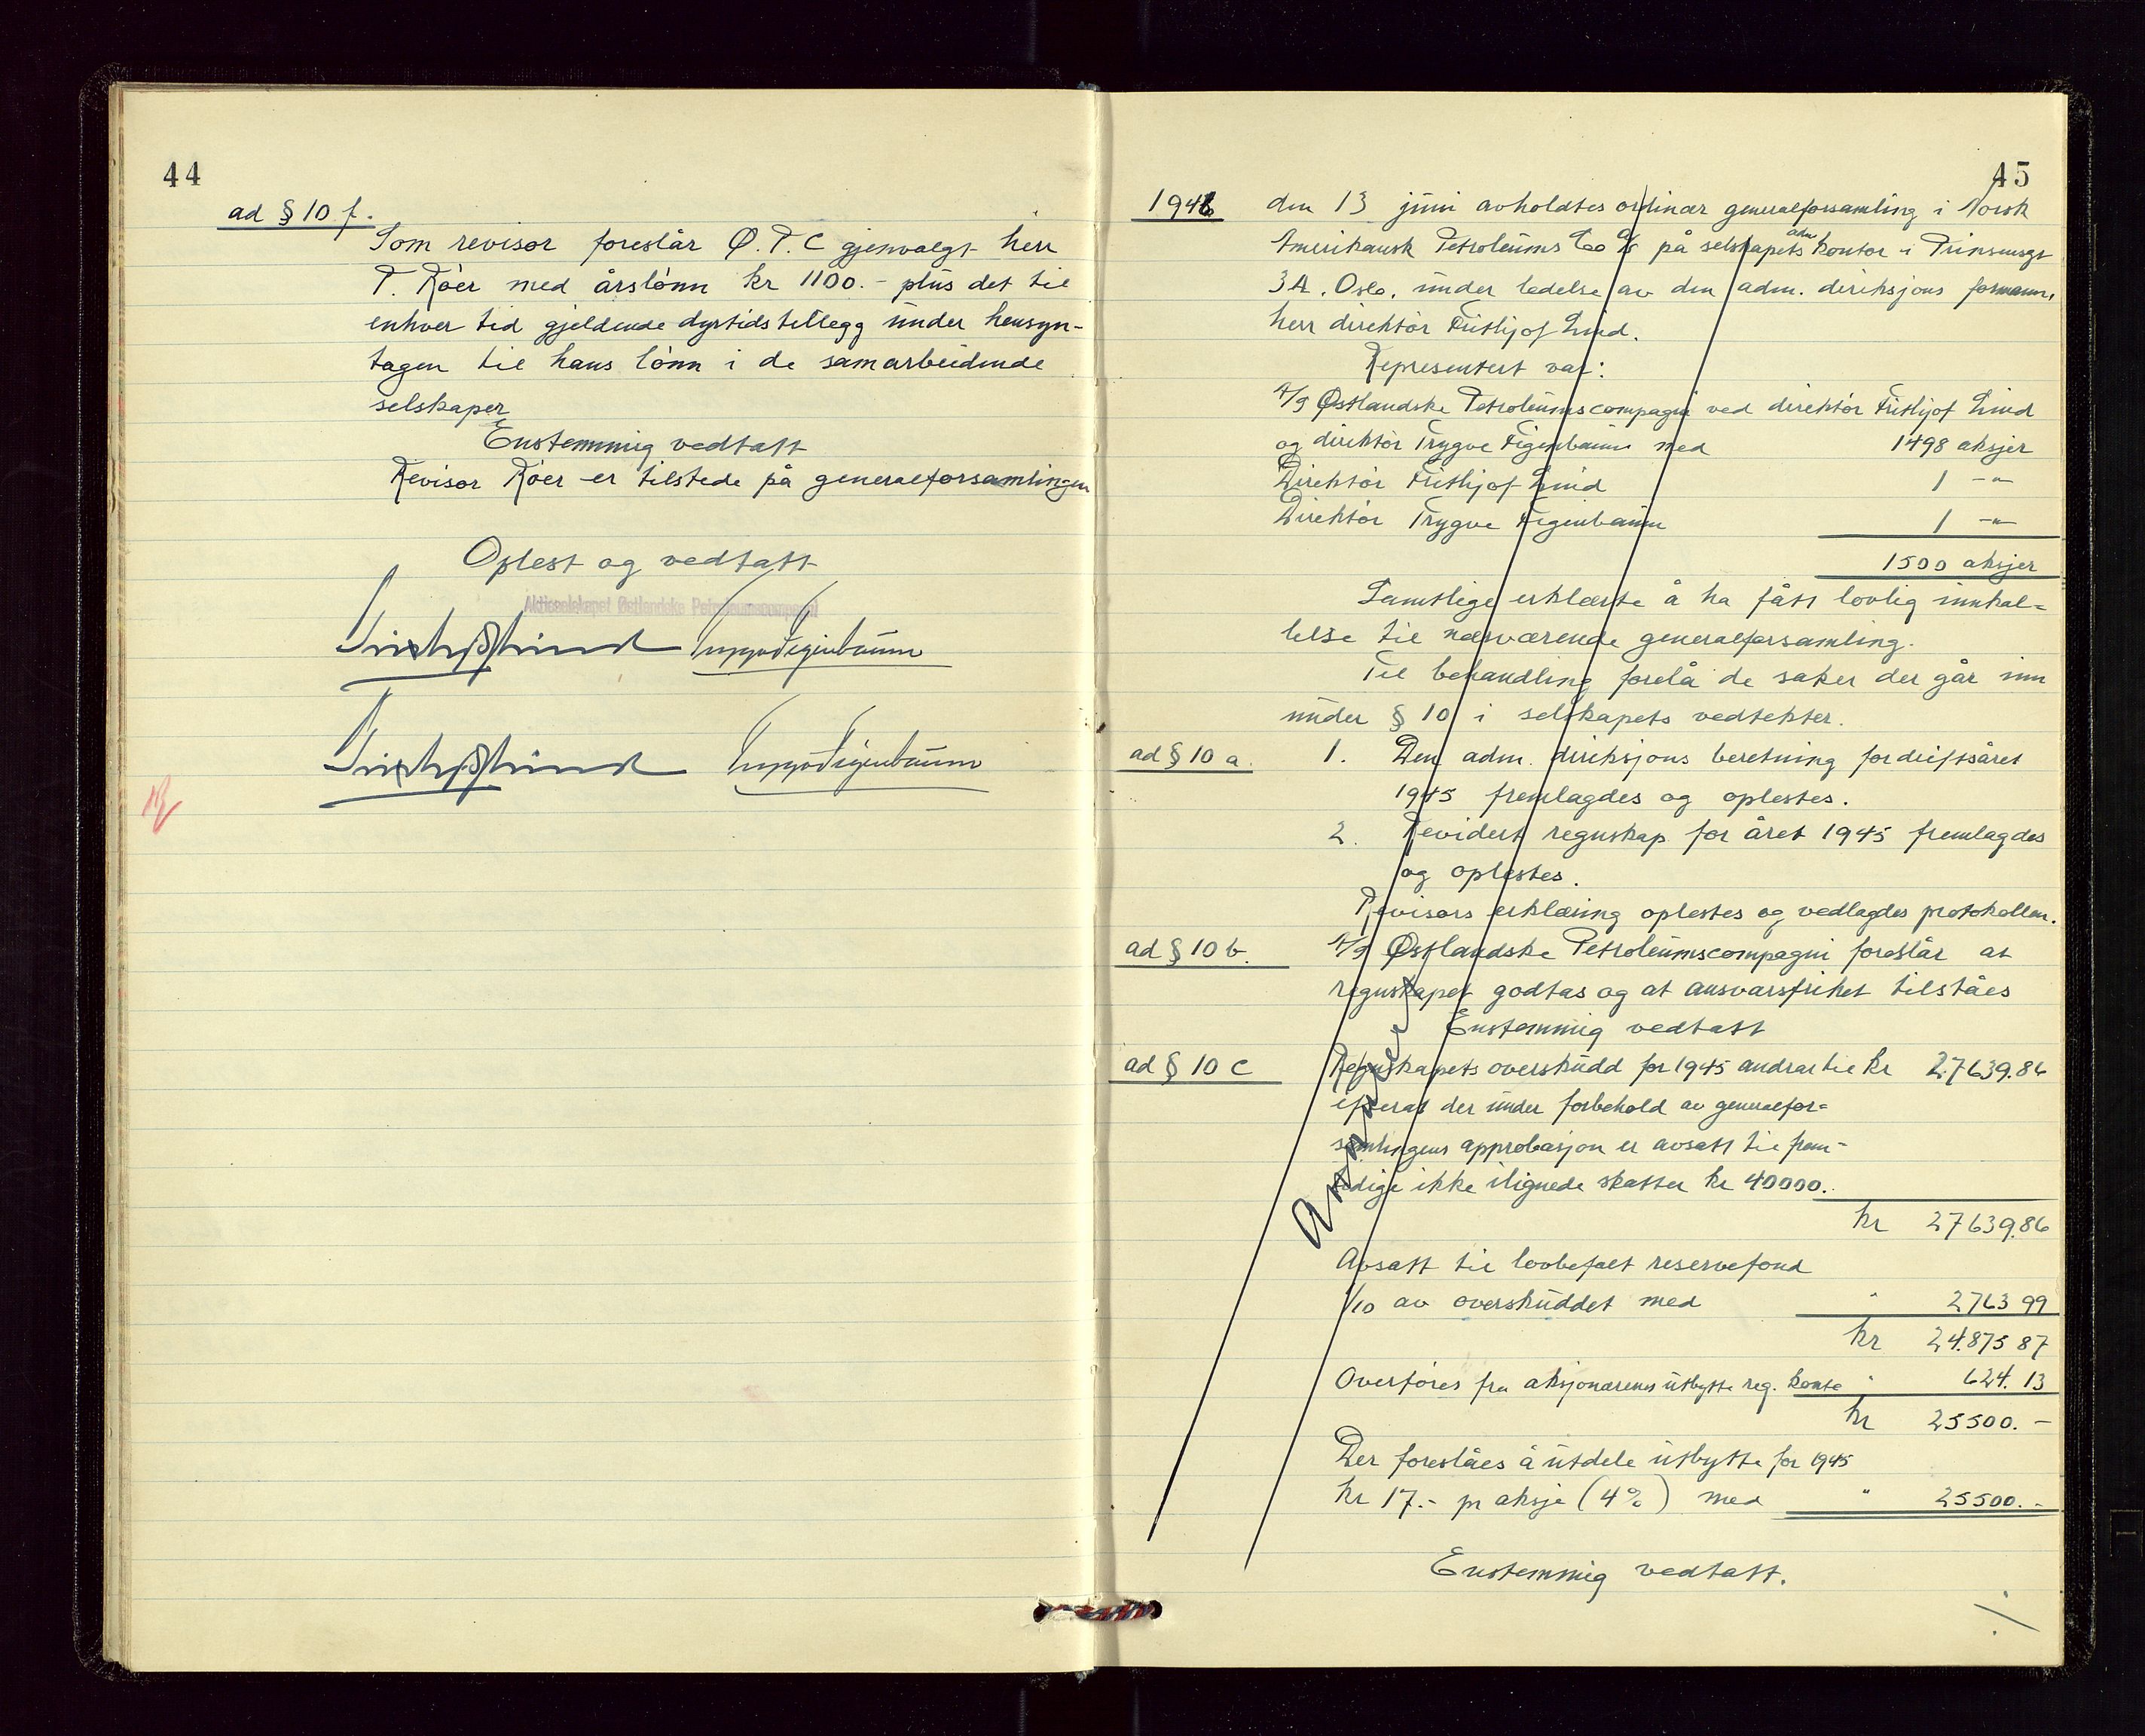 44
ad § 10 f.
Som revisor foreslår Ø.P.C gjenvalgt herr
T. Röer med årslönn kr 1100.- plus det til
enhver tid gjeldende dyrtidstillegg under hensyn-
tagen til hans lönn i de samarbeidende
selskaper
Enstemmig vedtatt
Revisor Röer er tilstede på generalforsamlingen
Oplest og vedtatt
Aktieselskapet Østlandske Petroleumscompagni
Frithjof Lind Trygve Figenbaum
Frithjof Lind Trygve Figenbaum
45
1946 den 13 juni avholdtes ordinær generalforsamling i Norsk
Amerikansk Petroleums Co A/S på selskapets adm kontor i Prinsensgt
3A. Oslo. under ledelse av den adm. direksjons formann,
herr direktör Frithjof Lind.
Representert var:
A/S Østlandske Petroleumscompagni ved direktör Frithjof Lind
og direktör Trygve Figenbaum med 1498 aksjer
Direktör Frithjof Lind 1 -"-
Direktör Trygve Figenbaum 1 -"-
1500 aksjer
Samtlige erklærte å ha fått lovlig innkal=
lelse til nærværende generalforsamling.
Til behandling forelå de saker der går inn
under § 10 i selskapets vedtekter.
ad § 10 a. 1. Den adm. direksjons beretning for driftsåret
1945 fremlagdes og oplestes.
2. Revidert regnskap for året 1945 fremlagdes
og oplestes.
Revisors erklæring oplestes og vedlagdes protokollen.
ad § 10 b. A/S Østlandske Petroleumscompagni foreslår at
regnskapet godtas og at ansvarsfrihet tilståes
Enstemmig vedtatt
ad § 10 c Regnskapets overskudd for 1945 andrar til kr 27639.86
efterat der under forbehold av generalfor=
samlingens approbasjon er avsatt til frem-
tidige ikke ilignede skatter kr 40000.
kr 27639.86
Avsatt til lovbefalt reservefond
1/10 av overskuddet med " 2763 99
kr 24.875 87
Overföres fra aksjonærenes utbytte reg. konto " 624.13
kr 25500.-
Der foreslåes å utdele utbytte for 1945
kr 17.- pr aksje (4%) med " 25500.-
Enstemmig vedtatt.
./.